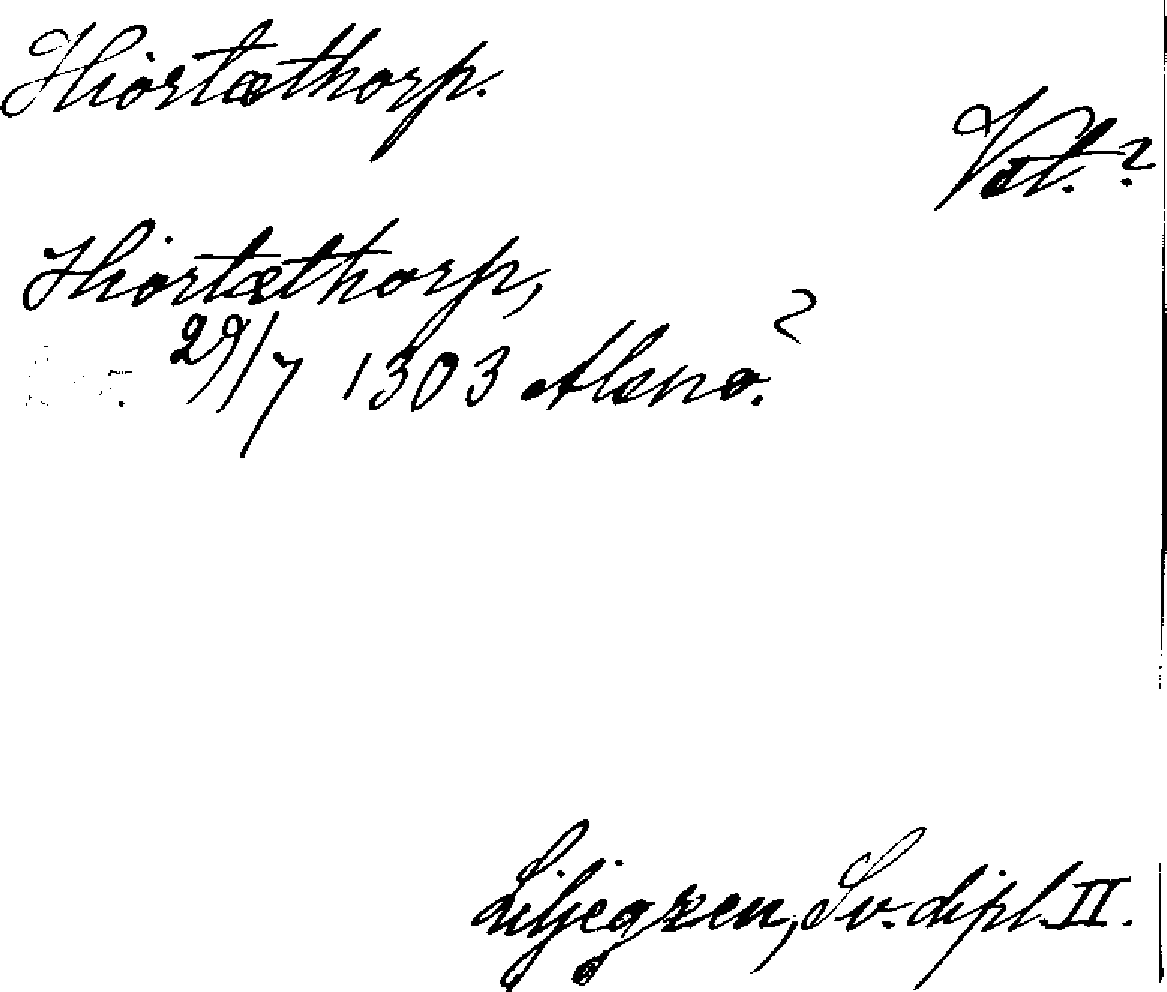 Hiortæthorp.
Vät.?
Hiortæthorp,
29/7 1303 Alsnø. ?
Liljegren, Sv. dipl. II.